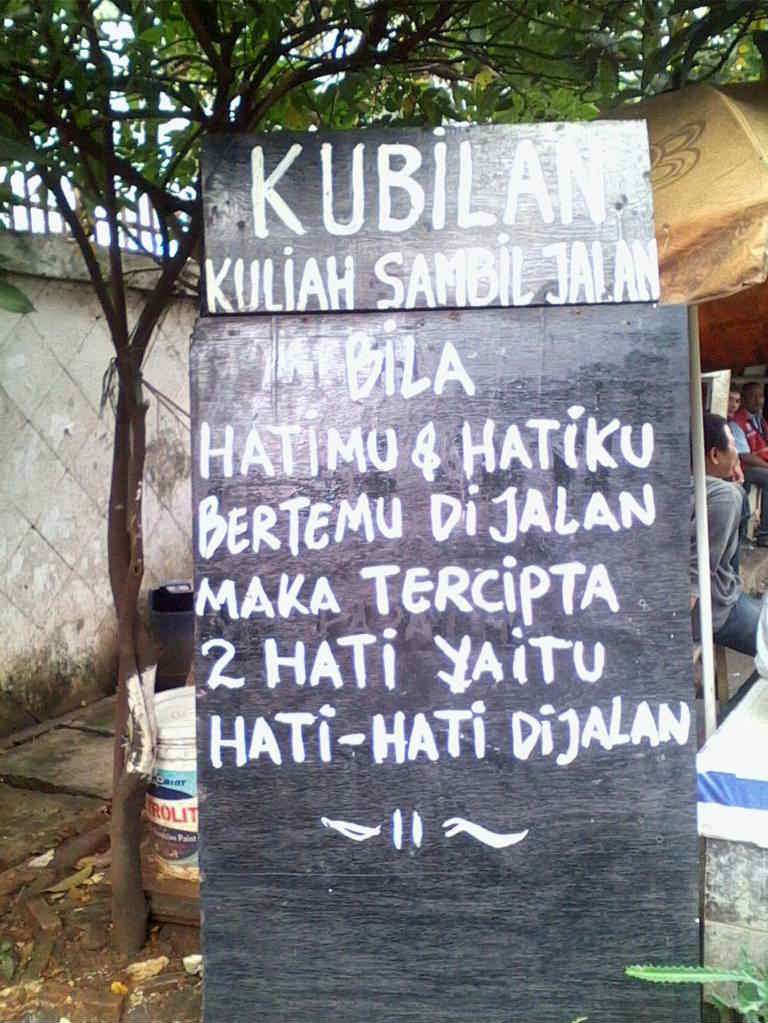 KUBiLAN
KULiAH SAMBiL JALAN
BiLA
HATiMU & HATiKU
BERTEMU Di JALAN
MAKA TERCiPTA
2 HATI YAiTU
HATi-HATi DiJALAN